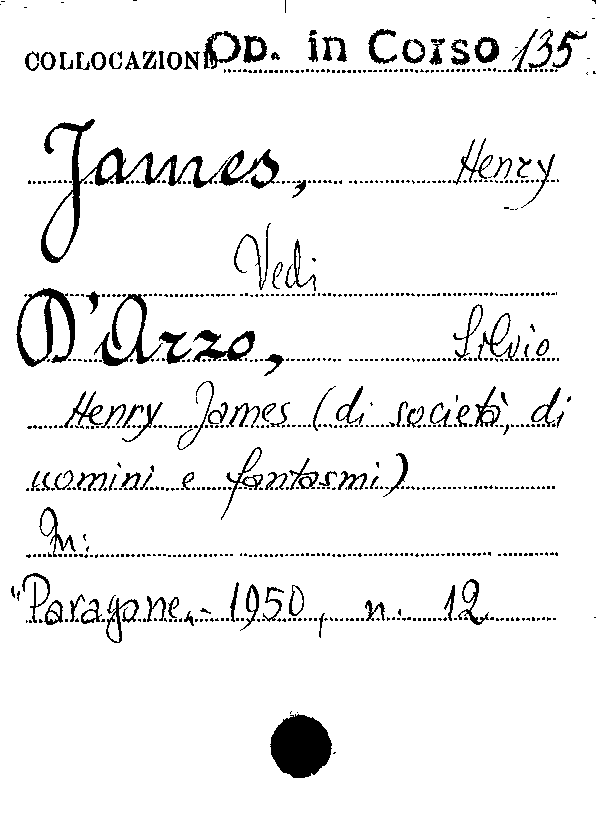 COLLOCAZIONE Op. in Corso 135
James, Henry
Vedi
D'Arzo, Silvio
Henry James (di società, di
uomini e fantasmi)
In:
"Paragone" - 1950, n. 12